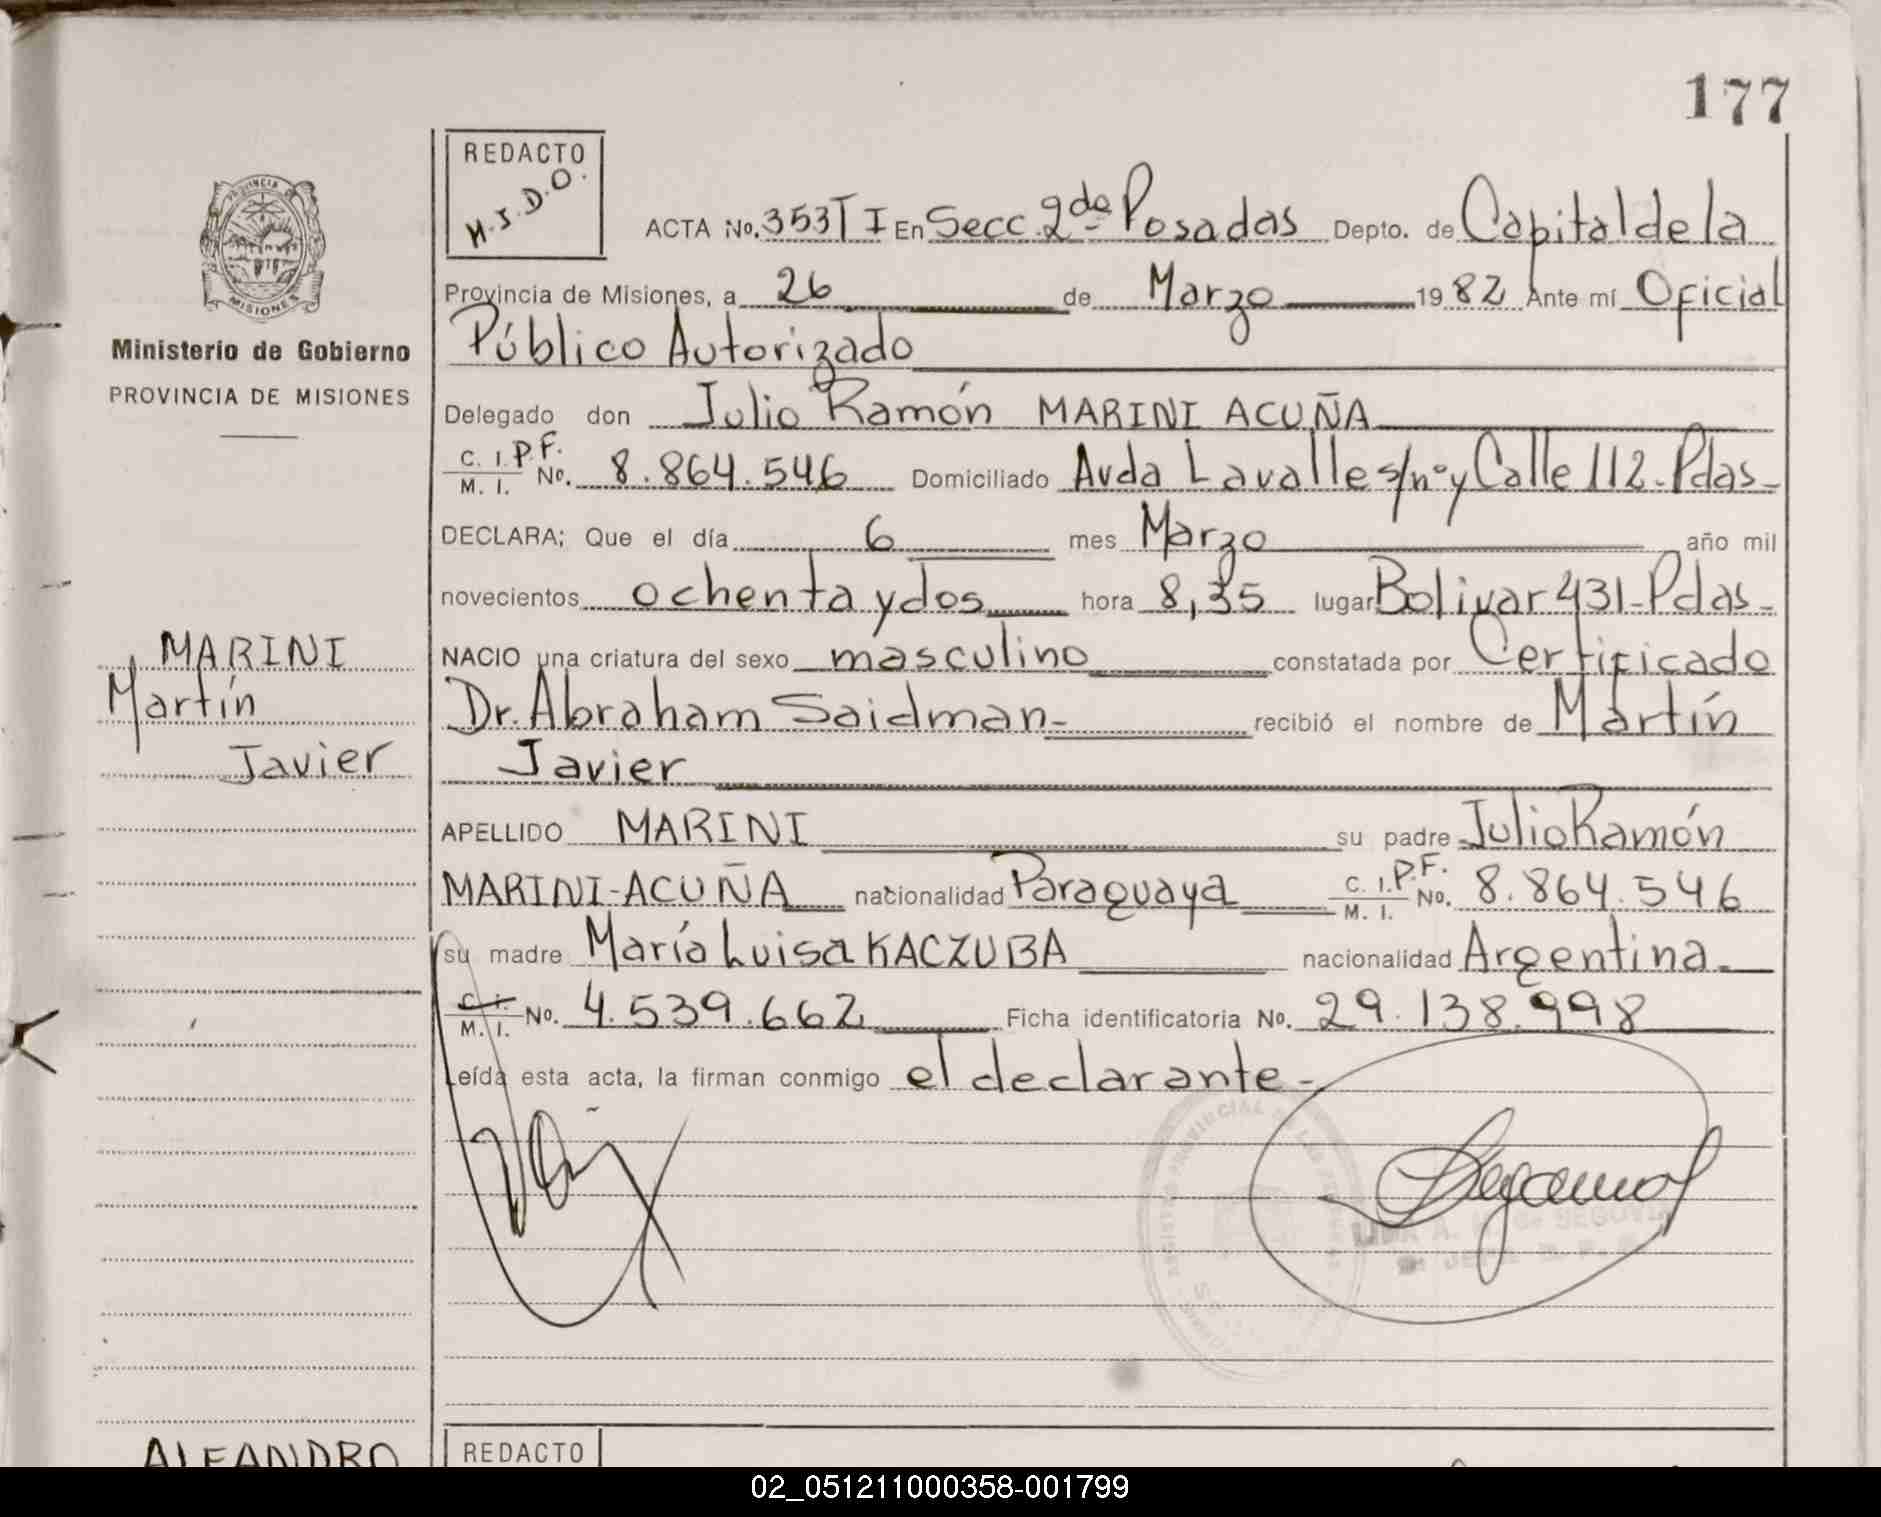 177
REDACTO
M.J.D.O.
ACTA No. 353 T I En Secc. 2da Posadas Depto. de Capital de la
Provincia de Misiones, a 26 de Marzo 1982 Ante mí Oficial
Público Autorizado
Delegado don Julio Ramón MARINI ACUÑA
C. I. P.F. M. I. No. 8.864.546 Domiciliado Avda Lavalle s/nº y Calle 112-Pdas-
DECLARA; Que el día 6 mes Marzo año mil
novecientos ochenta y dos hora 8,35 lugar Bolivar 431-Pdas-
NACIO una criatura del sexo masculino constatada por Certificado
Dr. Abraham Saidman- recibió el nombre de Martín
Javier
APELLIDO MARINI su padre Julio Ramón
MARINI-ACUÑA nacionalidad Paraguaya C. I. P.F. M. I. No. 8.864.546
su madre María Luisa KACZUBA nacionalidad Argentina-
C. I. M. I. No. 4.539.662 Ficha identificatoria No. 29.138.998
Leída esta acta, la firman conmigo el declarante-
PROVINCIA DE
MISIONES
Ministerio de Gobierno
PROVINCIA DE MISIONES
MARINI
Martín
Javier
A. de SEGOVIA
ALEANDRO
REDACTO
02_051211000358-001799